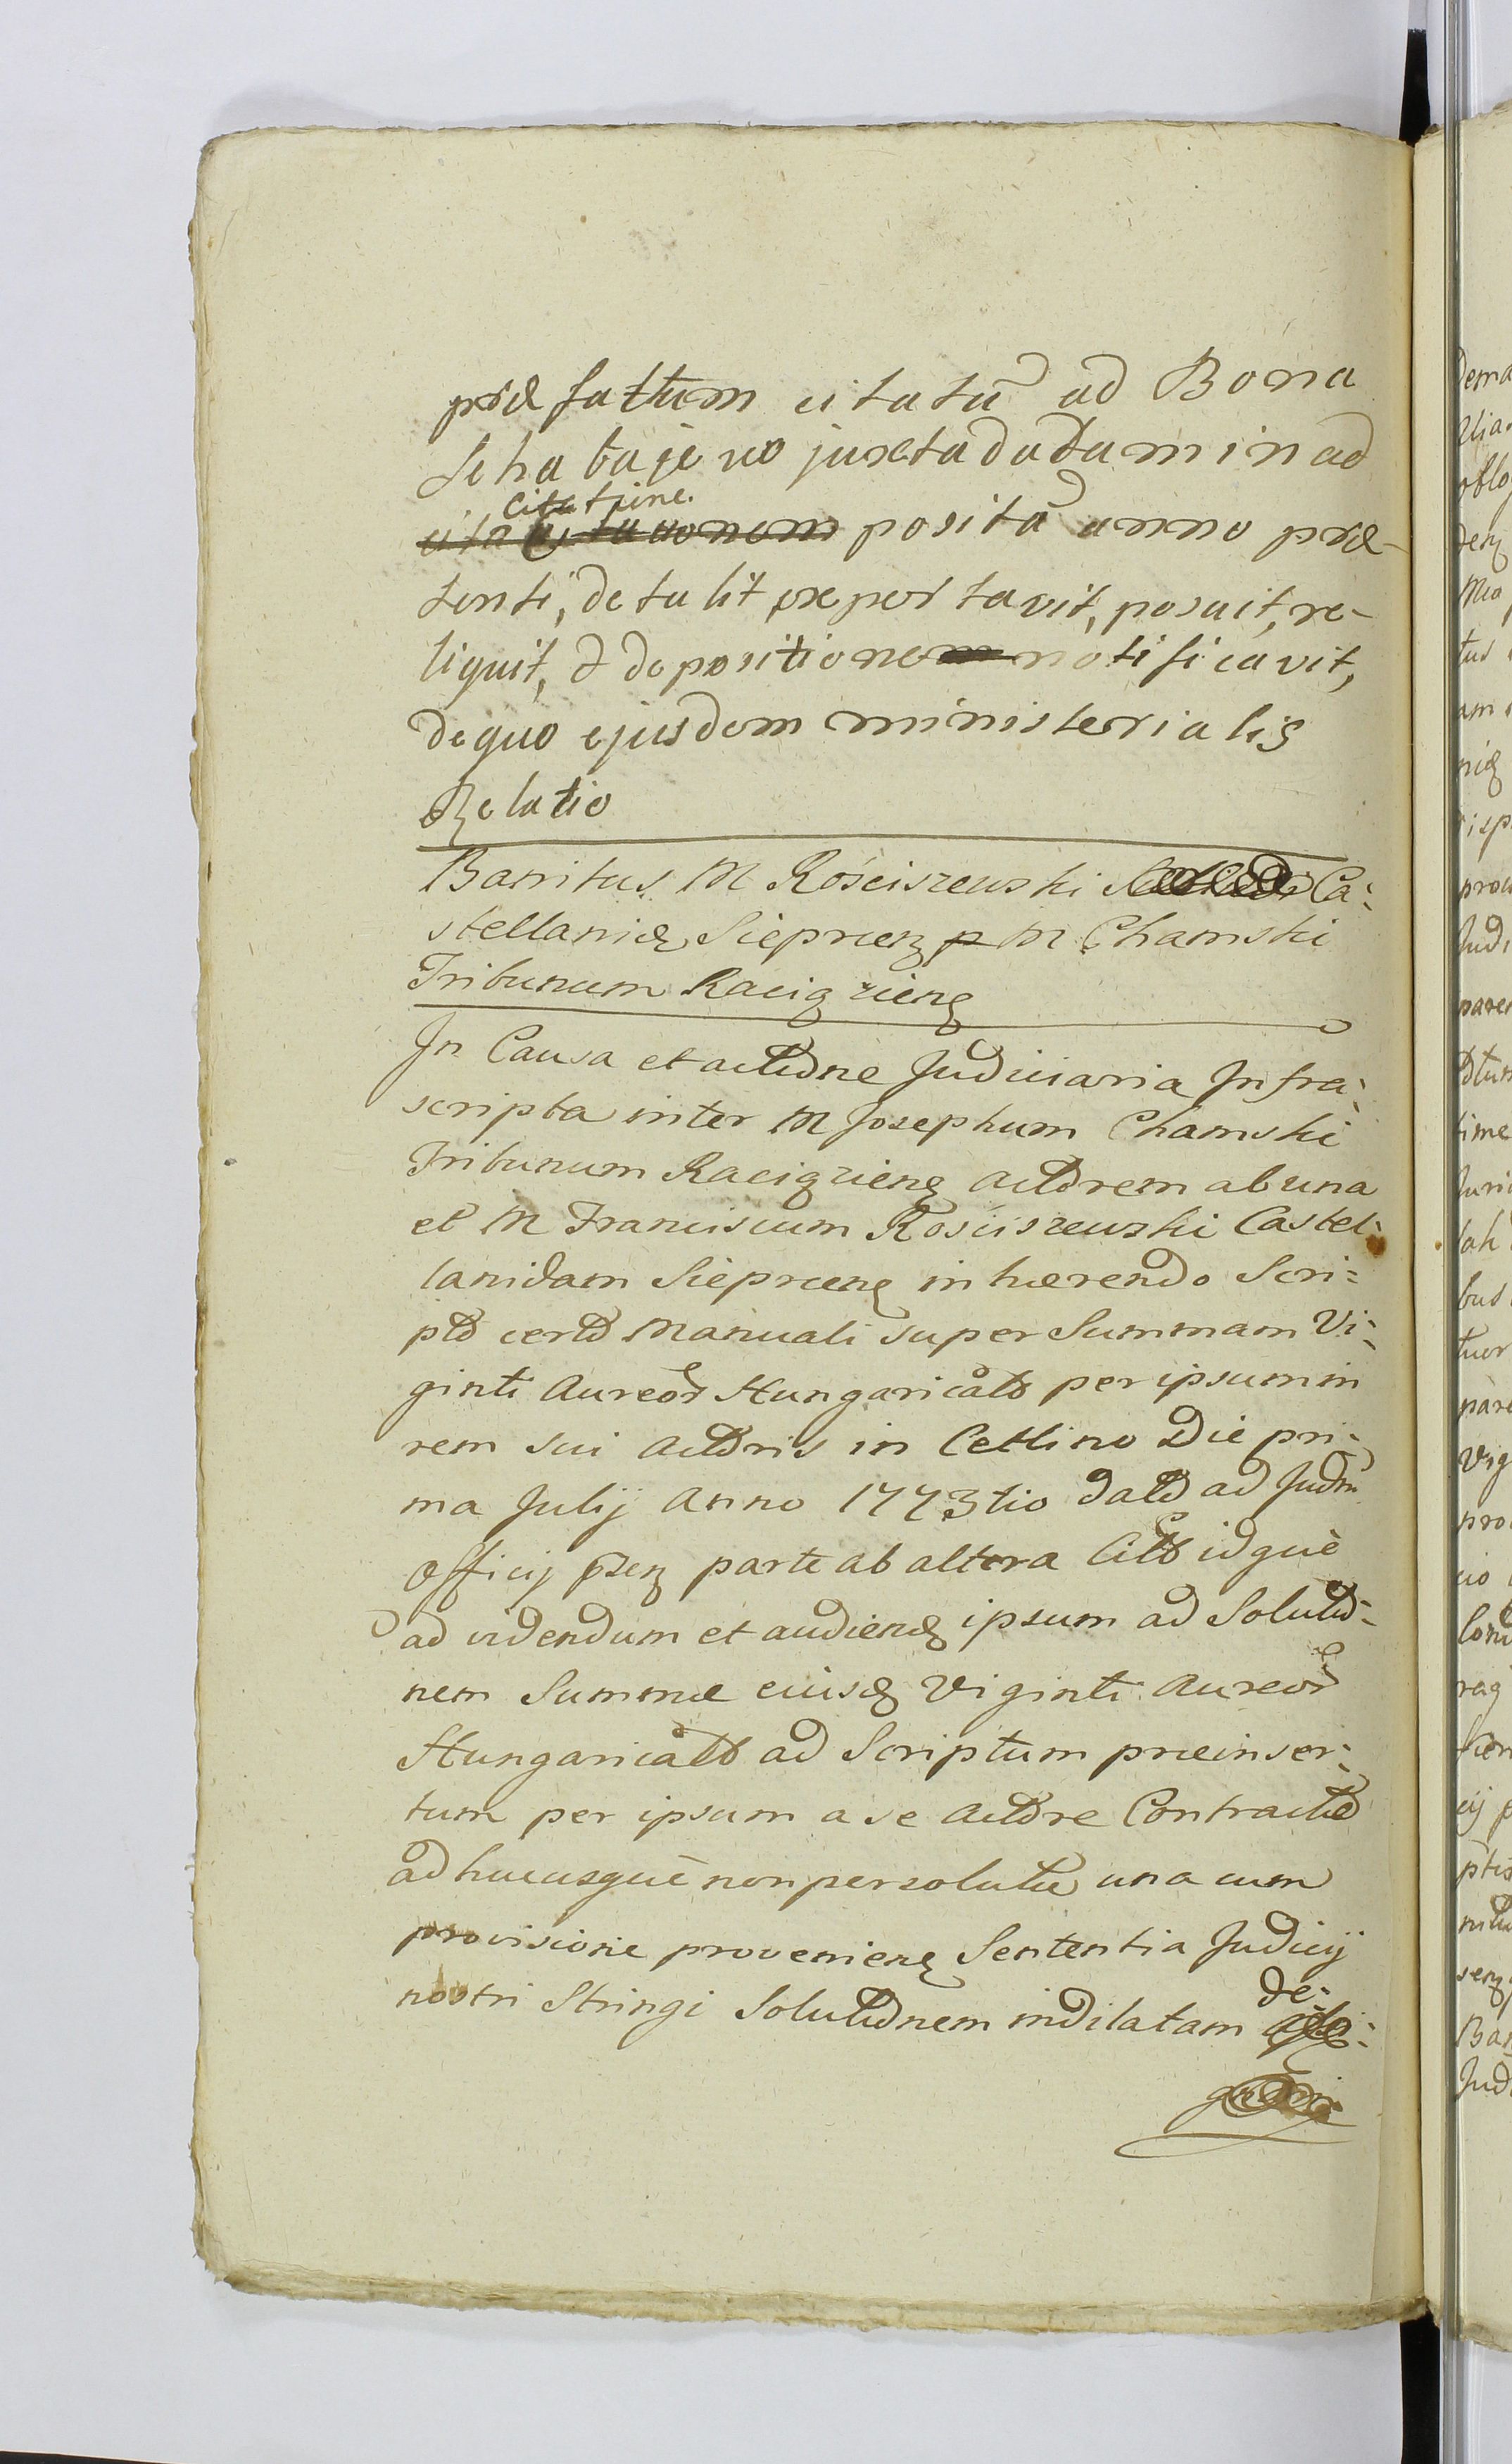 præfattum citatū ad Bona
Schabajewo juxta datam in ad
Citatione.
positā anno præ-
senti, detulit, exportavit, posuit, re-
liquit, & depositione notificavit,
de quo ejusdem ministerialis
Relatio
Banitus M Rościszewski Ca:
stellanidæ Sieprcen p M Chamski
Tribunum Raciązien
In Causa et actione Judiciaria Infra:
scripta inter M Josephum Chamski
Tribunum Raciązien actorem ab una
et M Franciscum Rościszewski Castel:
lanidam Sieprcen in hærendo Scri:
pto certo Manuali super Summam Vi:
ginti Aureor Hungaricalb per ipsum in
rem sui actoris in Cetlino Die pri:
ma Julij Anno 1773tio dato ad Judm
Officij psen parte ab altera Citb idquè
ad videndum et audiend ipsum ad Solutio-
nem Summæ eiusd Viginti Aureor
Hungaricalb ad Scriptum præinser:
tum per ipsum a se actore Contractæ
ad hucusquè non persolutæ una cum
provisione provenien Sententia Judicij
nostri Stringi Solutionem indilatam de: